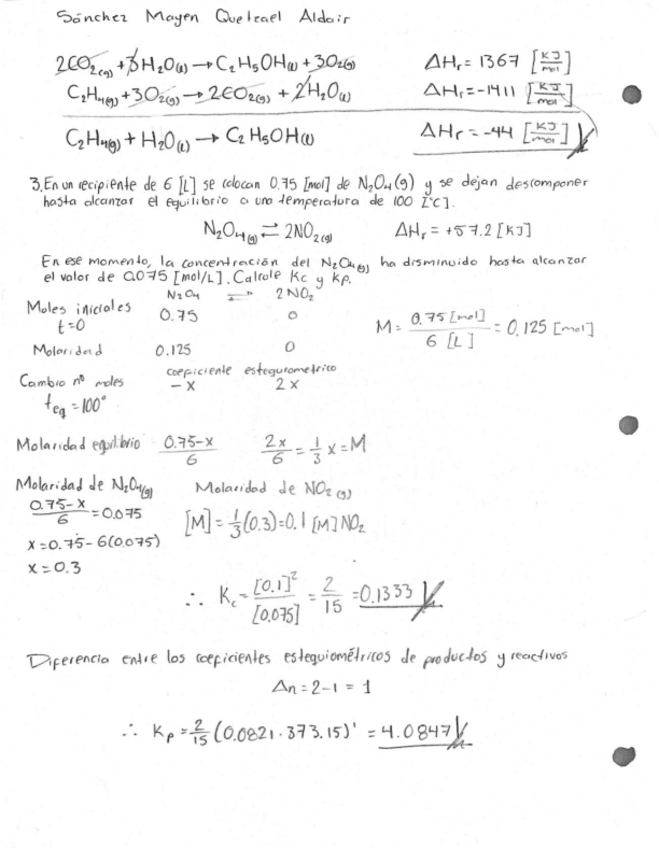 Sánchez Mayen Quetzael Aldair
2CO₂(g) + 3H₂O(l) → C₂H₅OH(l) + 3O₂(g) ΔHr = 1367 [KJ/mol]
C₂H₄(g) + 3O₂(g) → 2CO₂(g) + 2H₂O(l) ΔHr = -1411 [KJ/mol]
C₂H₄(g) + H₂O(l) → C₂H₅OH(l) ΔHr = -44 [KJ/mol]
3. En un recipiente de 6 [L] se colocan 0.75 [mol] de N₂O₄(g) y se dejan descomponer
hasta alcanzar el equilibrio a una temperatura de 100 [°C].
N₂O₄(g) ⇌ 2NO₂(g) ΔHr = +57.2 [KJ]
En ese momento, la concentración del N₂O₄(g) ha disminuido hasta alcanzar
el valor de 0.075 [mol/L]. Calcule Kc y Kp.
N₂O₄ ⇌ 2NO₂
Moles iniciales 0.75 0
t=0
M = 0.75 [mol] / 6 [L] = 0.125 [mol]
Molaridad 0.125 0
coeficiente estequiometrico
Cambio nº moles -x 2x
teq = 100°
Molaridad equilibrio 0.75-x / 6 2x/6 = 1/3 x = M
Molaridad de N₂O₄(g) Molaridad de NO₂(g)
0.75-x / 6 = 0.075 [M] = 1/3 (0.3) = 0.1 [M] NO₂
x = 0.75 - 6(0.075)
x = 0.3
∴ Kc = [0.1]² / [0.075] = 2/15 = 0.1333
Diferencia entre los coeficientes estequiométricos de productos y reactivos
Δn = 2-1 = 1
∴ Kp = 2/15 (0.0821 · 373.15)¹ = 4.0847